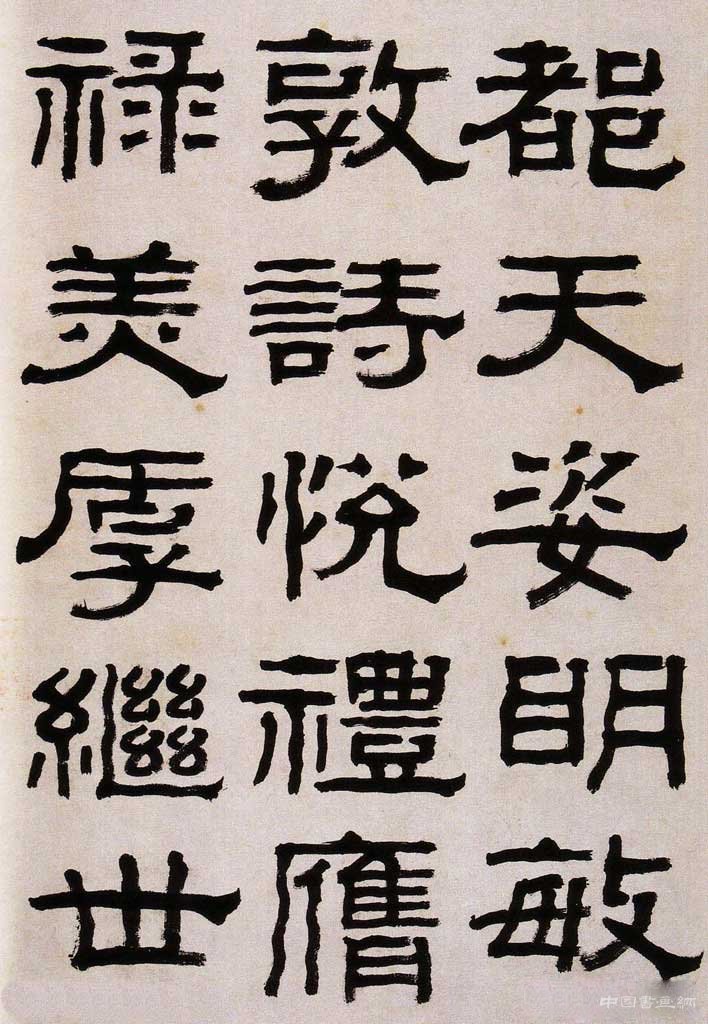 都天姿明敏
敦詩悅禮膺
祿美厚繼世
中国書画網